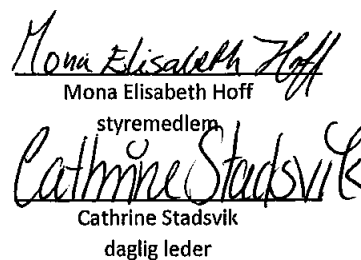 Mona Elisabeth Hoff
Mona Elisabeth Hoff
styremedlem
Cathrine Stadsvik
Cathrine Stadsvik
daglig leder